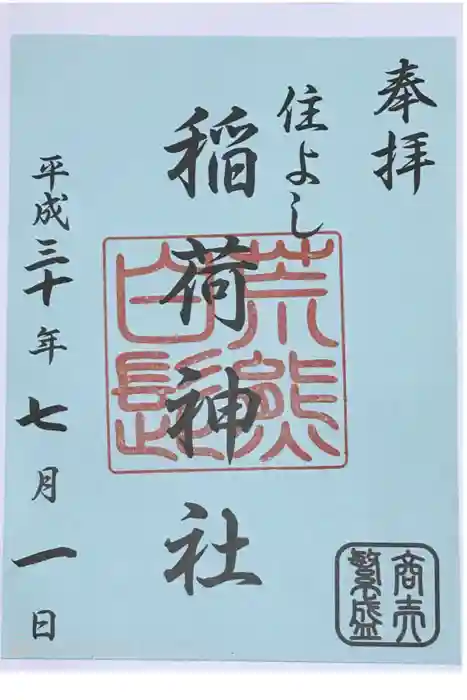 奉拝
住よし
稲荷神社
平成三十年七月一日
荒熊
白髭
商売
繁盛